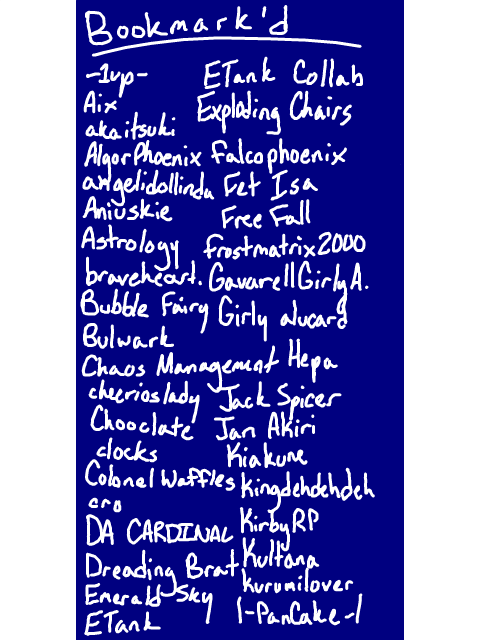 Bookmark'd
-1up-
Aix
akaitsuki
AlgorPhoenix
angelidollinda
Aniuskie
Astrology
braveheart.
Bubble Fairy
Bulwark
Chaos Management
cheerioslady
Chooclate
clocks
Colonel Waffles
cro
DA CARDINAL
Dreading Brat
Emerald-Sky
ETank
ETank Collab
Exploding Chairs
falcophoenix
Fet Isa
Free Fall
frostmatrix2000
GavarellGirlyA.
Girly alucard
Hepa
Jack Spicer
Jan Akiri
Kiakune
kingdehdehdeh
KirbyRP
Kultana
kurumilover
l-PanCake-l